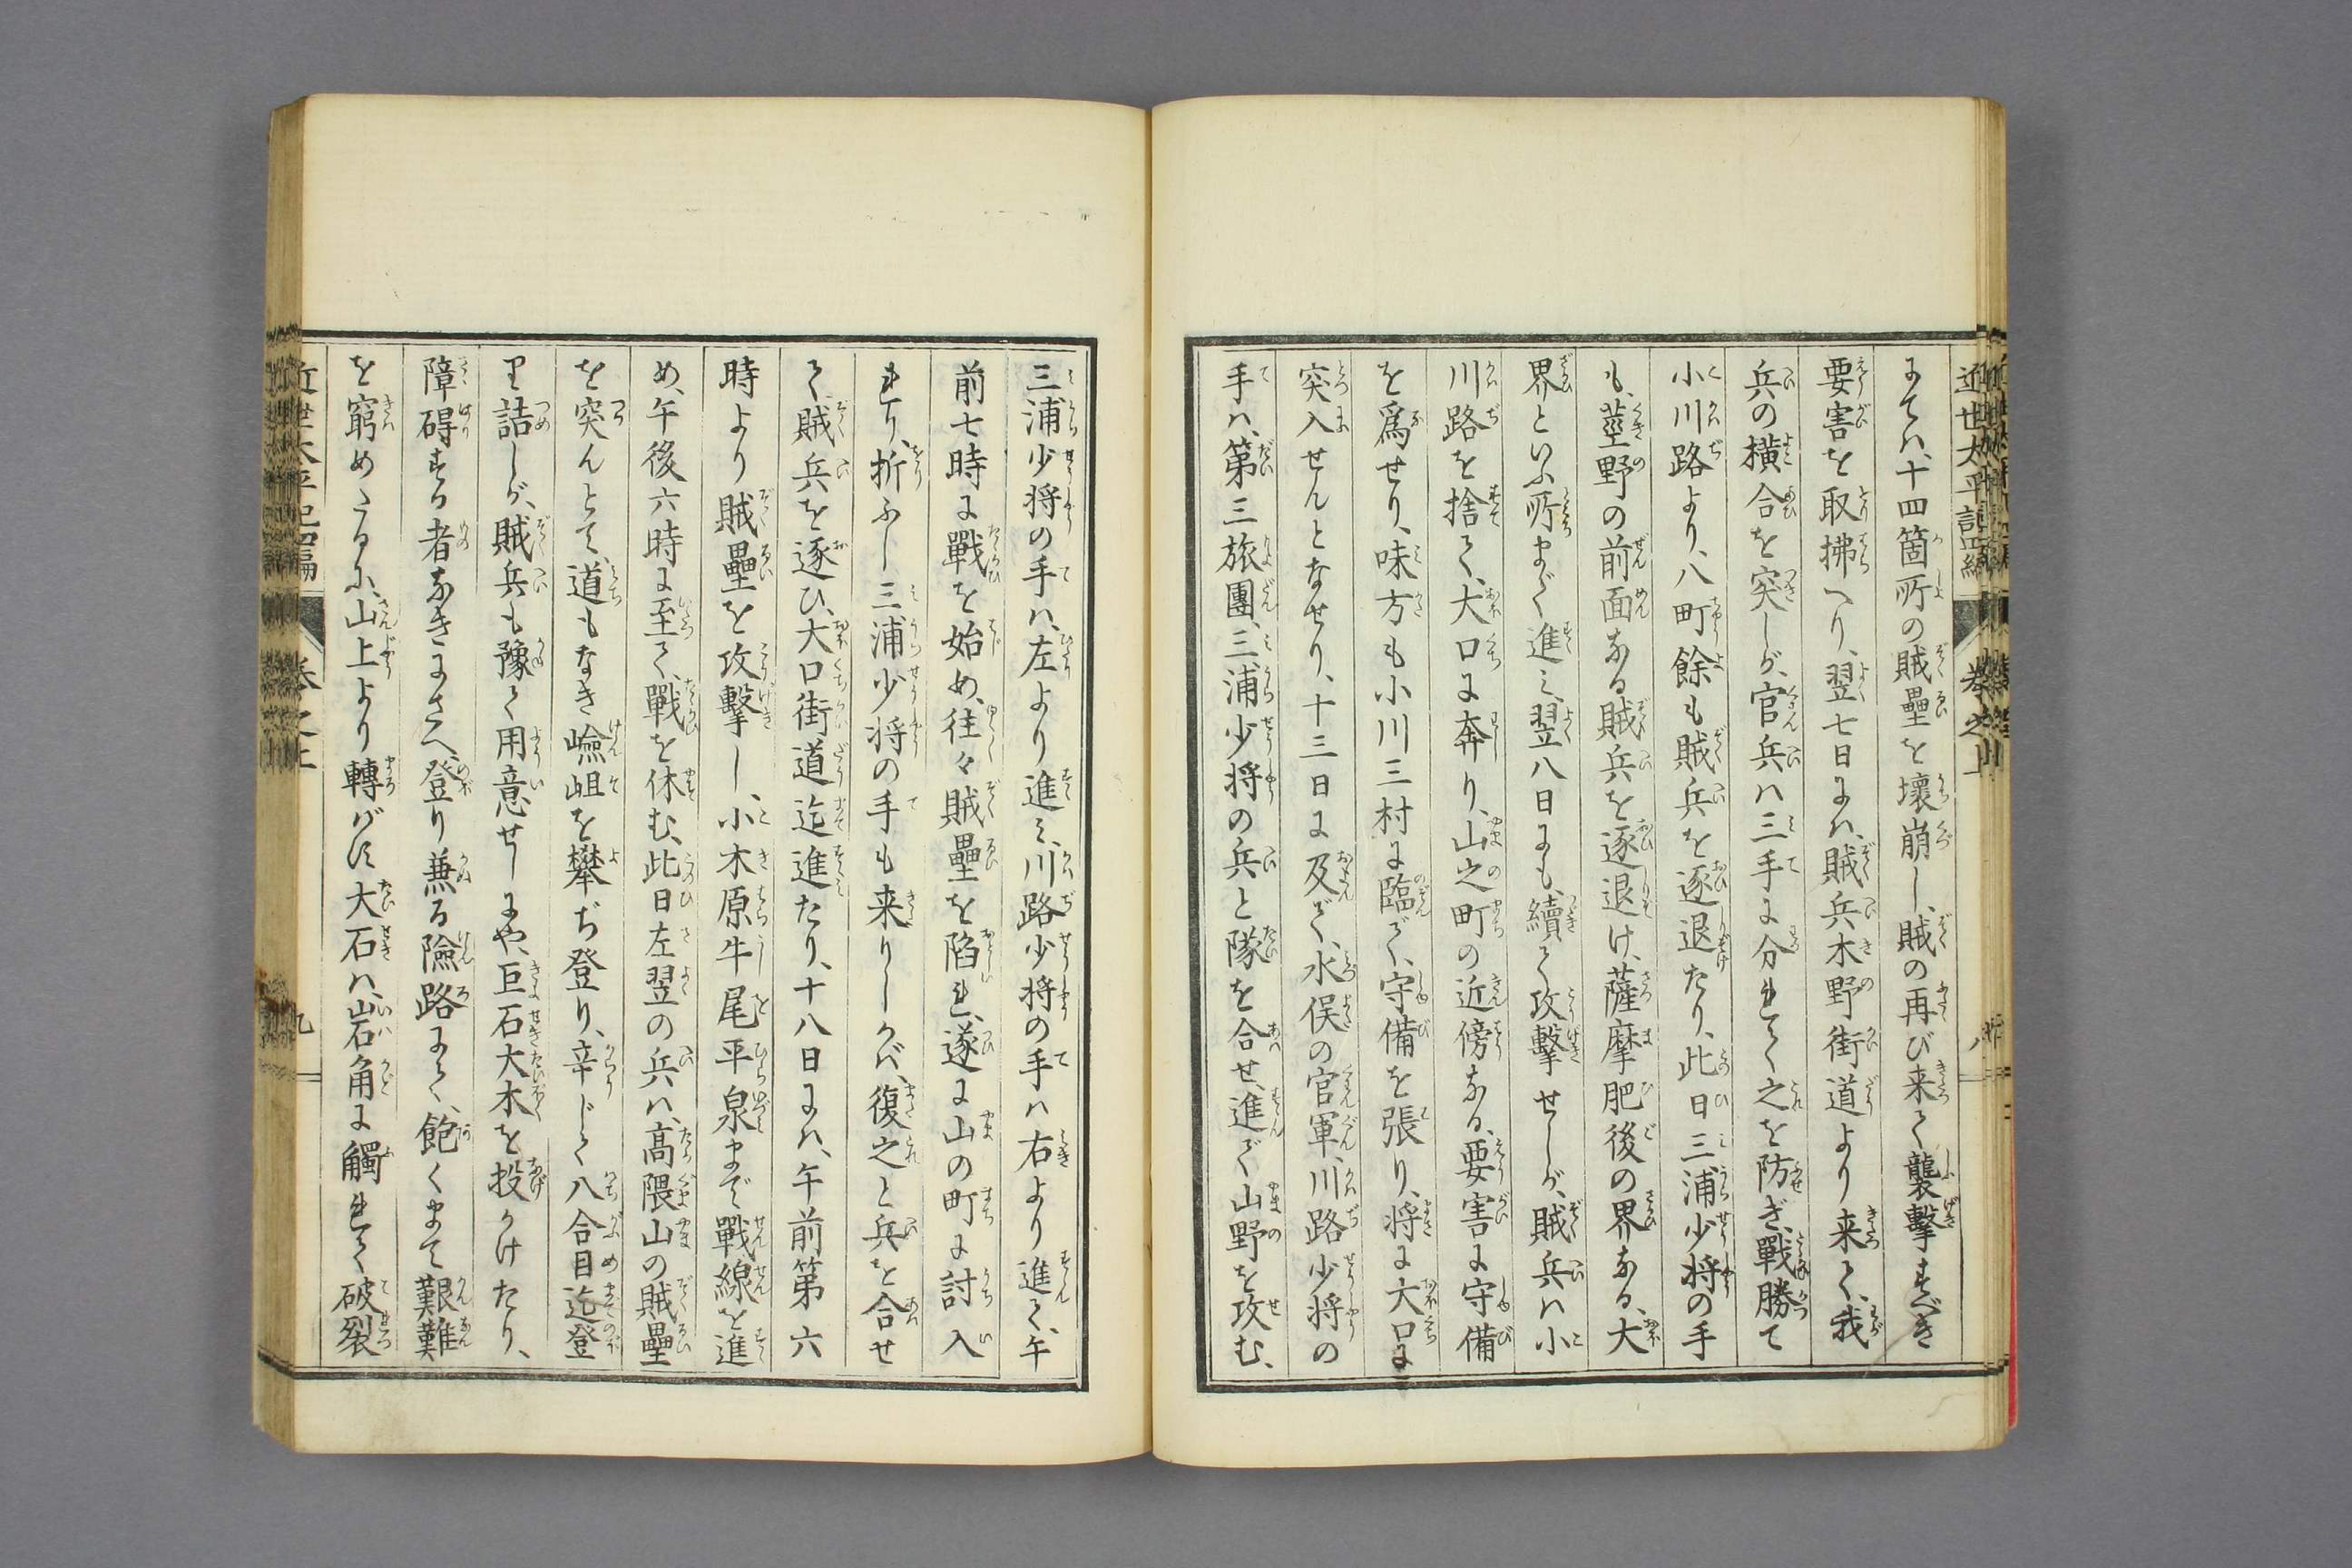 近世太平記四編 卷之上 八
にてハ、十四箇所の賊壘を壞崩し、賊の再び来て襲撃すべき
要害を取拂へり、翌七日にハ、賊兵木野街道より来て、我
兵の横合を突しが、官兵ハ三手に分れて之を防ぎ、戰勝て
小川路より、八町餘も賊兵を逐退たり、此日三浦少将の手
も、莖野の前面なる賊兵を逐退け、薩摩肥後の界なる、大
界といふ所まで進ミ、翌八日にも、續て攻撃せしが、賊兵ハ小
川路を捨て、大口に奔り、山之町の近傍なる、要害に守備
を爲せり、味方も小川三村に臨て、守備を張り、将に大口に
突入せんとなせり、十三日に及で、水俣の官軍、川路少将の
手ハ、第三旅團、三浦少将の兵と隊を合せ、進で山野を攻む、
三浦少将の手ハ、左より進ミ、川路少将の手ハ右より進て、午
前七時に戰を始め、往々賊壘を陷れ、遂に山の町に討入
れり、折ふし三浦少将の手も来りしかば、復之と兵を合せ
て、賊兵を逐ひ、大口街道迄進たり、十八日にハ、午前第六
時より賊壘を攻撃し、小木原牛尾平泉まで戰線を進
め、午後六時に至て、戰を休む、此日左翌の兵ハ、高隈山の賊壘
を突んとて、道もなき嶮岨を攀ぢ登り、辛じて八合目迄登
り詰しが、賊兵も豫て用意せしにや、巨石大木を投かけたり、
障碍する者なきにさへ、登り兼る險路にて、飽くまで艱難
を窮めたるに、山上より轉ばす大石ハ、岩角に觸れて破裂
近世太平記四編 卷之上 九